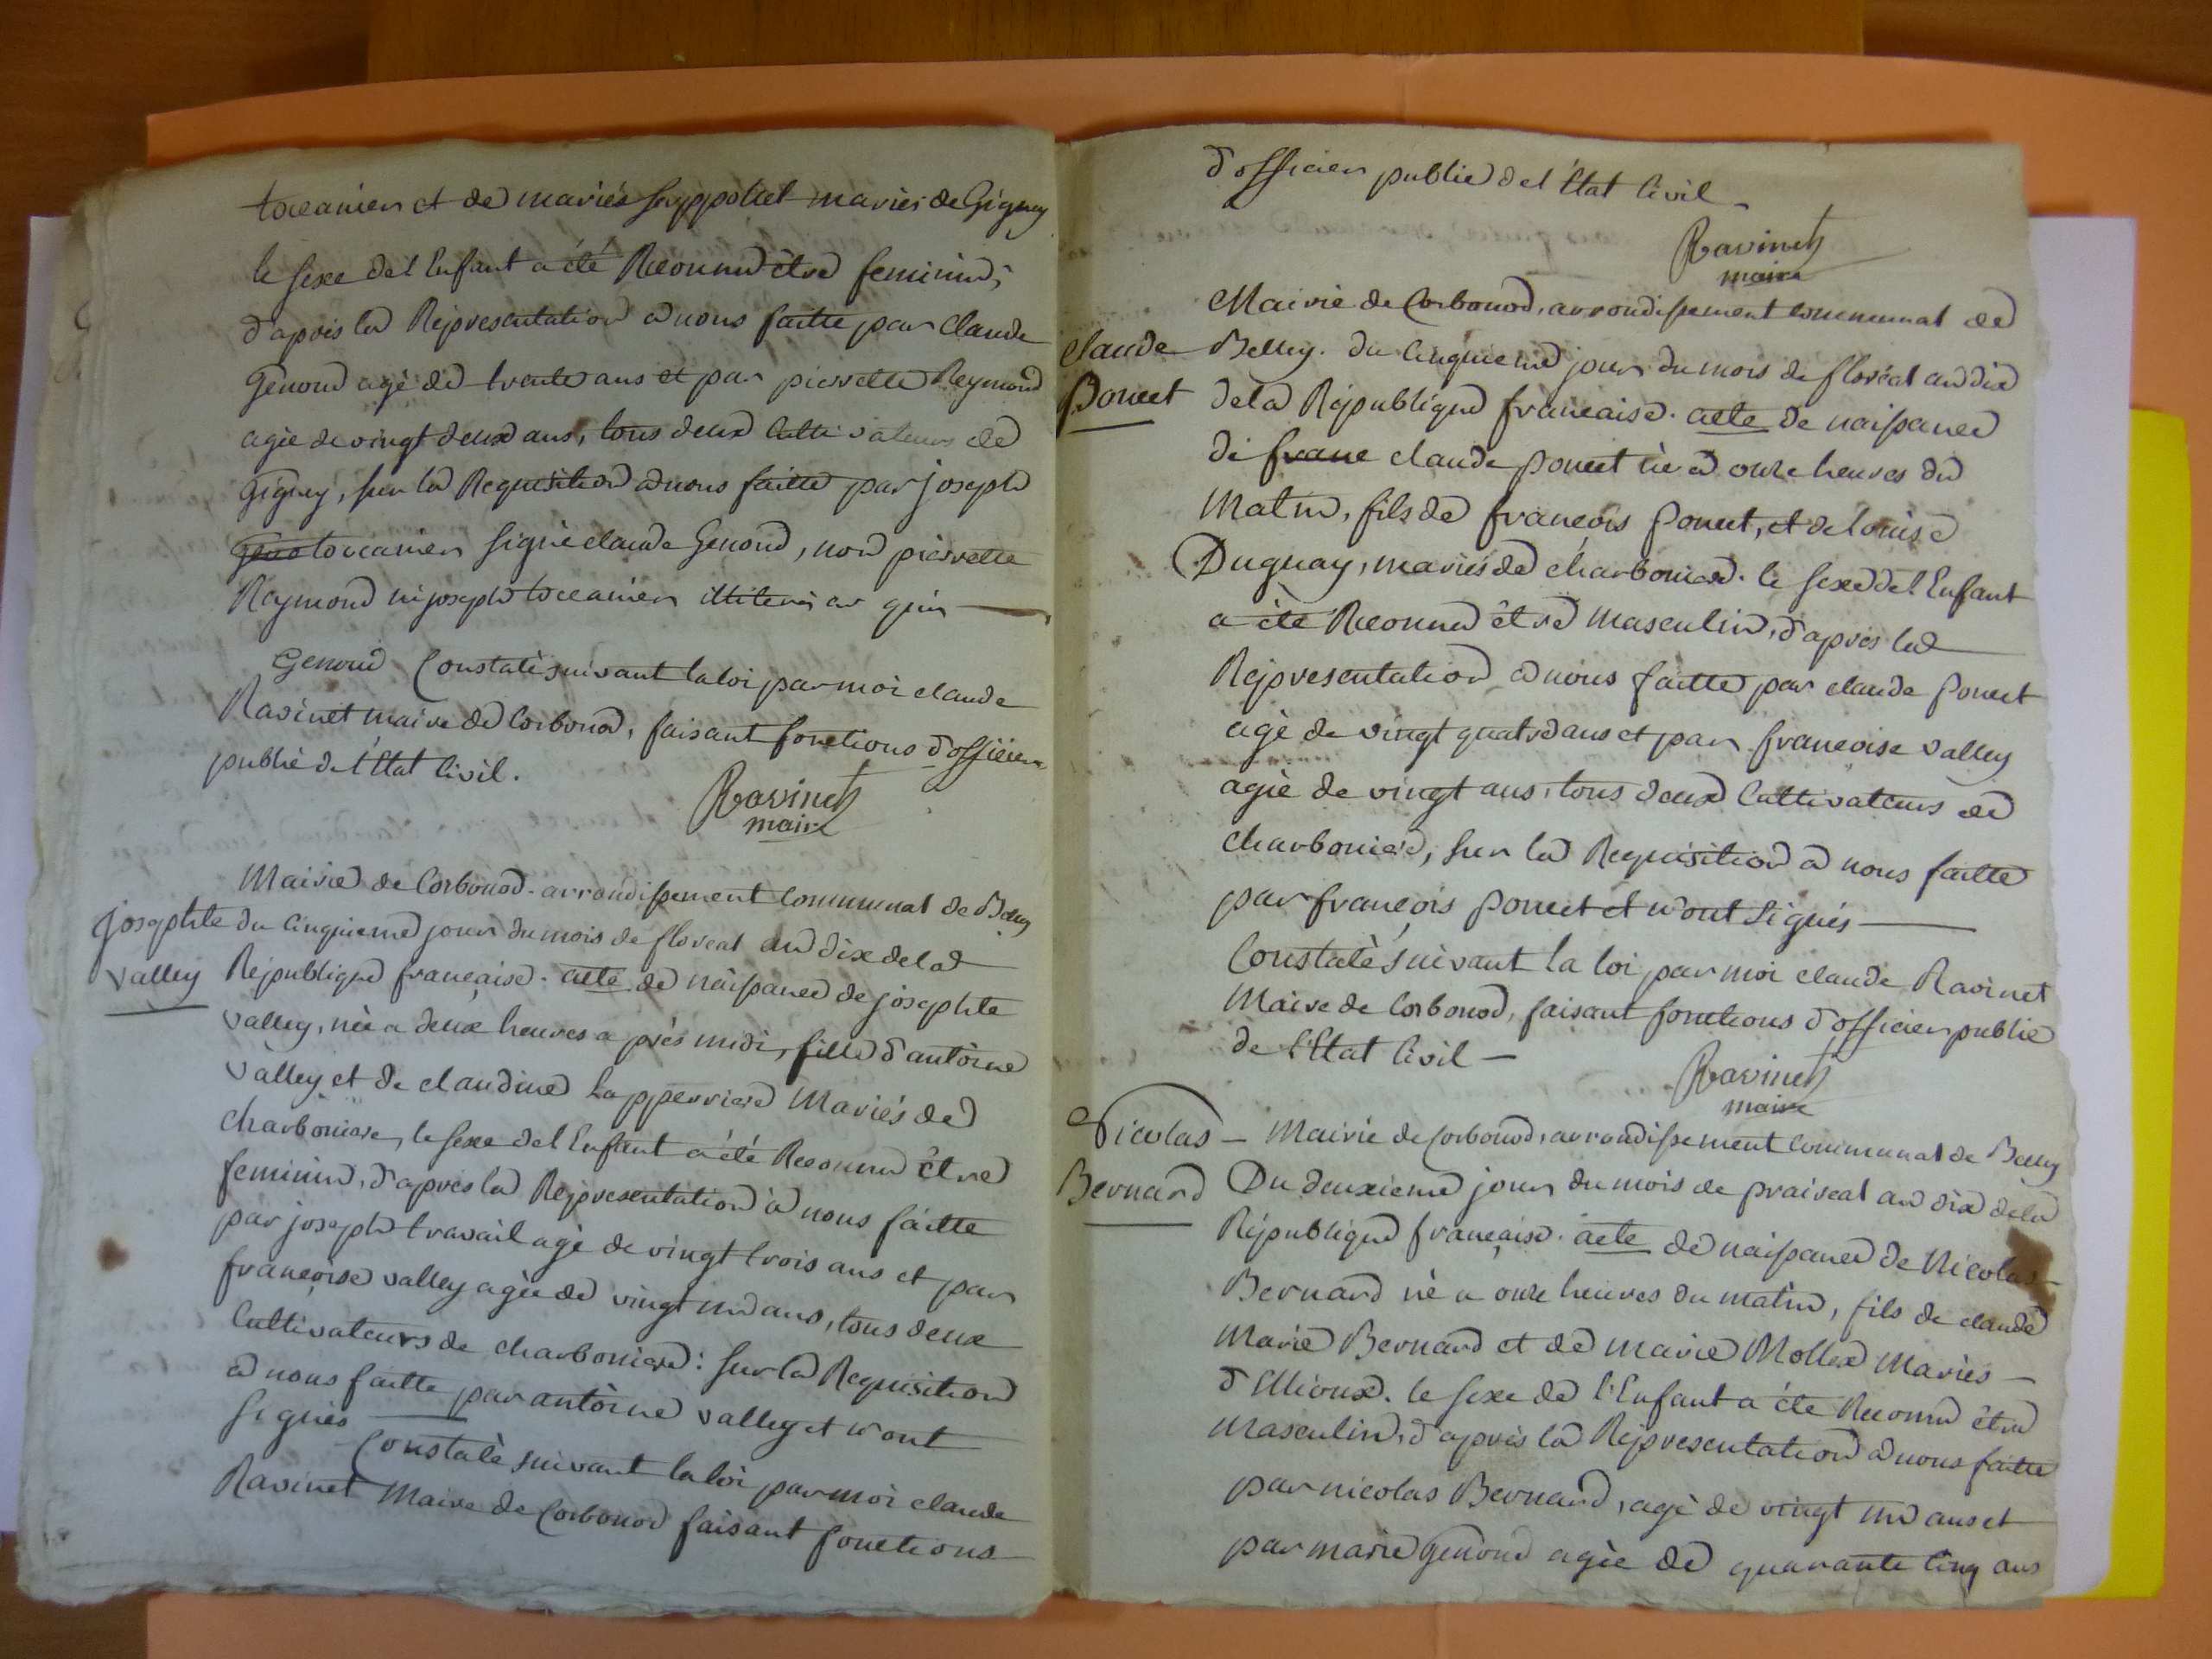 tocanier et de mariés hyppolict mariés de Gigney
le sexe del Enfant a été Reconnu être feminin,
d'après la Répresentation a nous faitte par claude
Genoud agé de trente ans et par pierrette Reymond
agée de vingt deux ans, tous deux Culti vateurs de
Gigney, sur la Requisition a nous faitte par joseph
tocanier signé claude Genoud, non pierrette
Raymond ni joseph tocanier illiterés
Genoud Constaté suivant la loi par moi claude
Ravinet maire de Corbonod, faisant fonctions d'officier
public del'Etat Civil.
Ravinet
maire
Mairie de Corbonod. arrondissement Communal de Belley
josephte
valley
du Cinquieme jour du mois de floreal an dix dela
République française. acte de naissance de josephte
valley, née a deux heures a près midi, fille d'antoine
valley et de claudine Lapperriere Mariés de
charboniere, le sexe del Enfant a été Reconnu être
feminin, d'après la Répresentation à nous faitte
par joseph travail agé de vingt trois ans et par
françoise valley agée de vingt un ans, tous deux
Cultivateurs de charboniere: sur la Requisition
a nous faitte par antoine valley et n'ont
signés
Constaté suivant la loi par moi claude
Ravinet Maire de Corbonod faisant fonctions
d'officier public del Etat Civil
Ravinet
maire
Mairie de Corbonod, arrondissement communal de
claude
Poncet
Belley. du Cinquieme jour du mois de floréal an dix
dela République française. acte de naissance
de franc claude poncet né a onze heures du
Matin, fils de françois poncet, et de louise
Duguay, mariés de charboniere. le sexe del Enfant
a été Reconnu être Masculin, d'après la
Répresentation a nous faitte par claude poncet
agé de vingt quatre ans et par françoise valley
agée de vingt ans, tous deux Cultivateurs de
charboniere, sur la Requisition a nous faitte
par françois poncet et n'ont signés
Constaté suivant la loi par moi claude Ravinet
Maire de Corbonod, faisant fonctions d'officier public
de l'Etat Civil
Ravinet
maire
Nicolas
Bernard
Mairie de Corbonod, arrondissement communal de Belley
Du deuxieme jour du mois de praireal an dix dela
République française. acte de naissance de Nicolas
Bernard né a onze heures du matin, fils de claude
Marie Bernard et de marie Mollex Mariés
d'Etlioux. le sexe de l'Enfant a été Reconnu être
Masculin, d'après la Répresentation a nous faitte
par nicolas Bernard, agé de vingt un ans et
par marie genoud agée de quarante Cinq ans